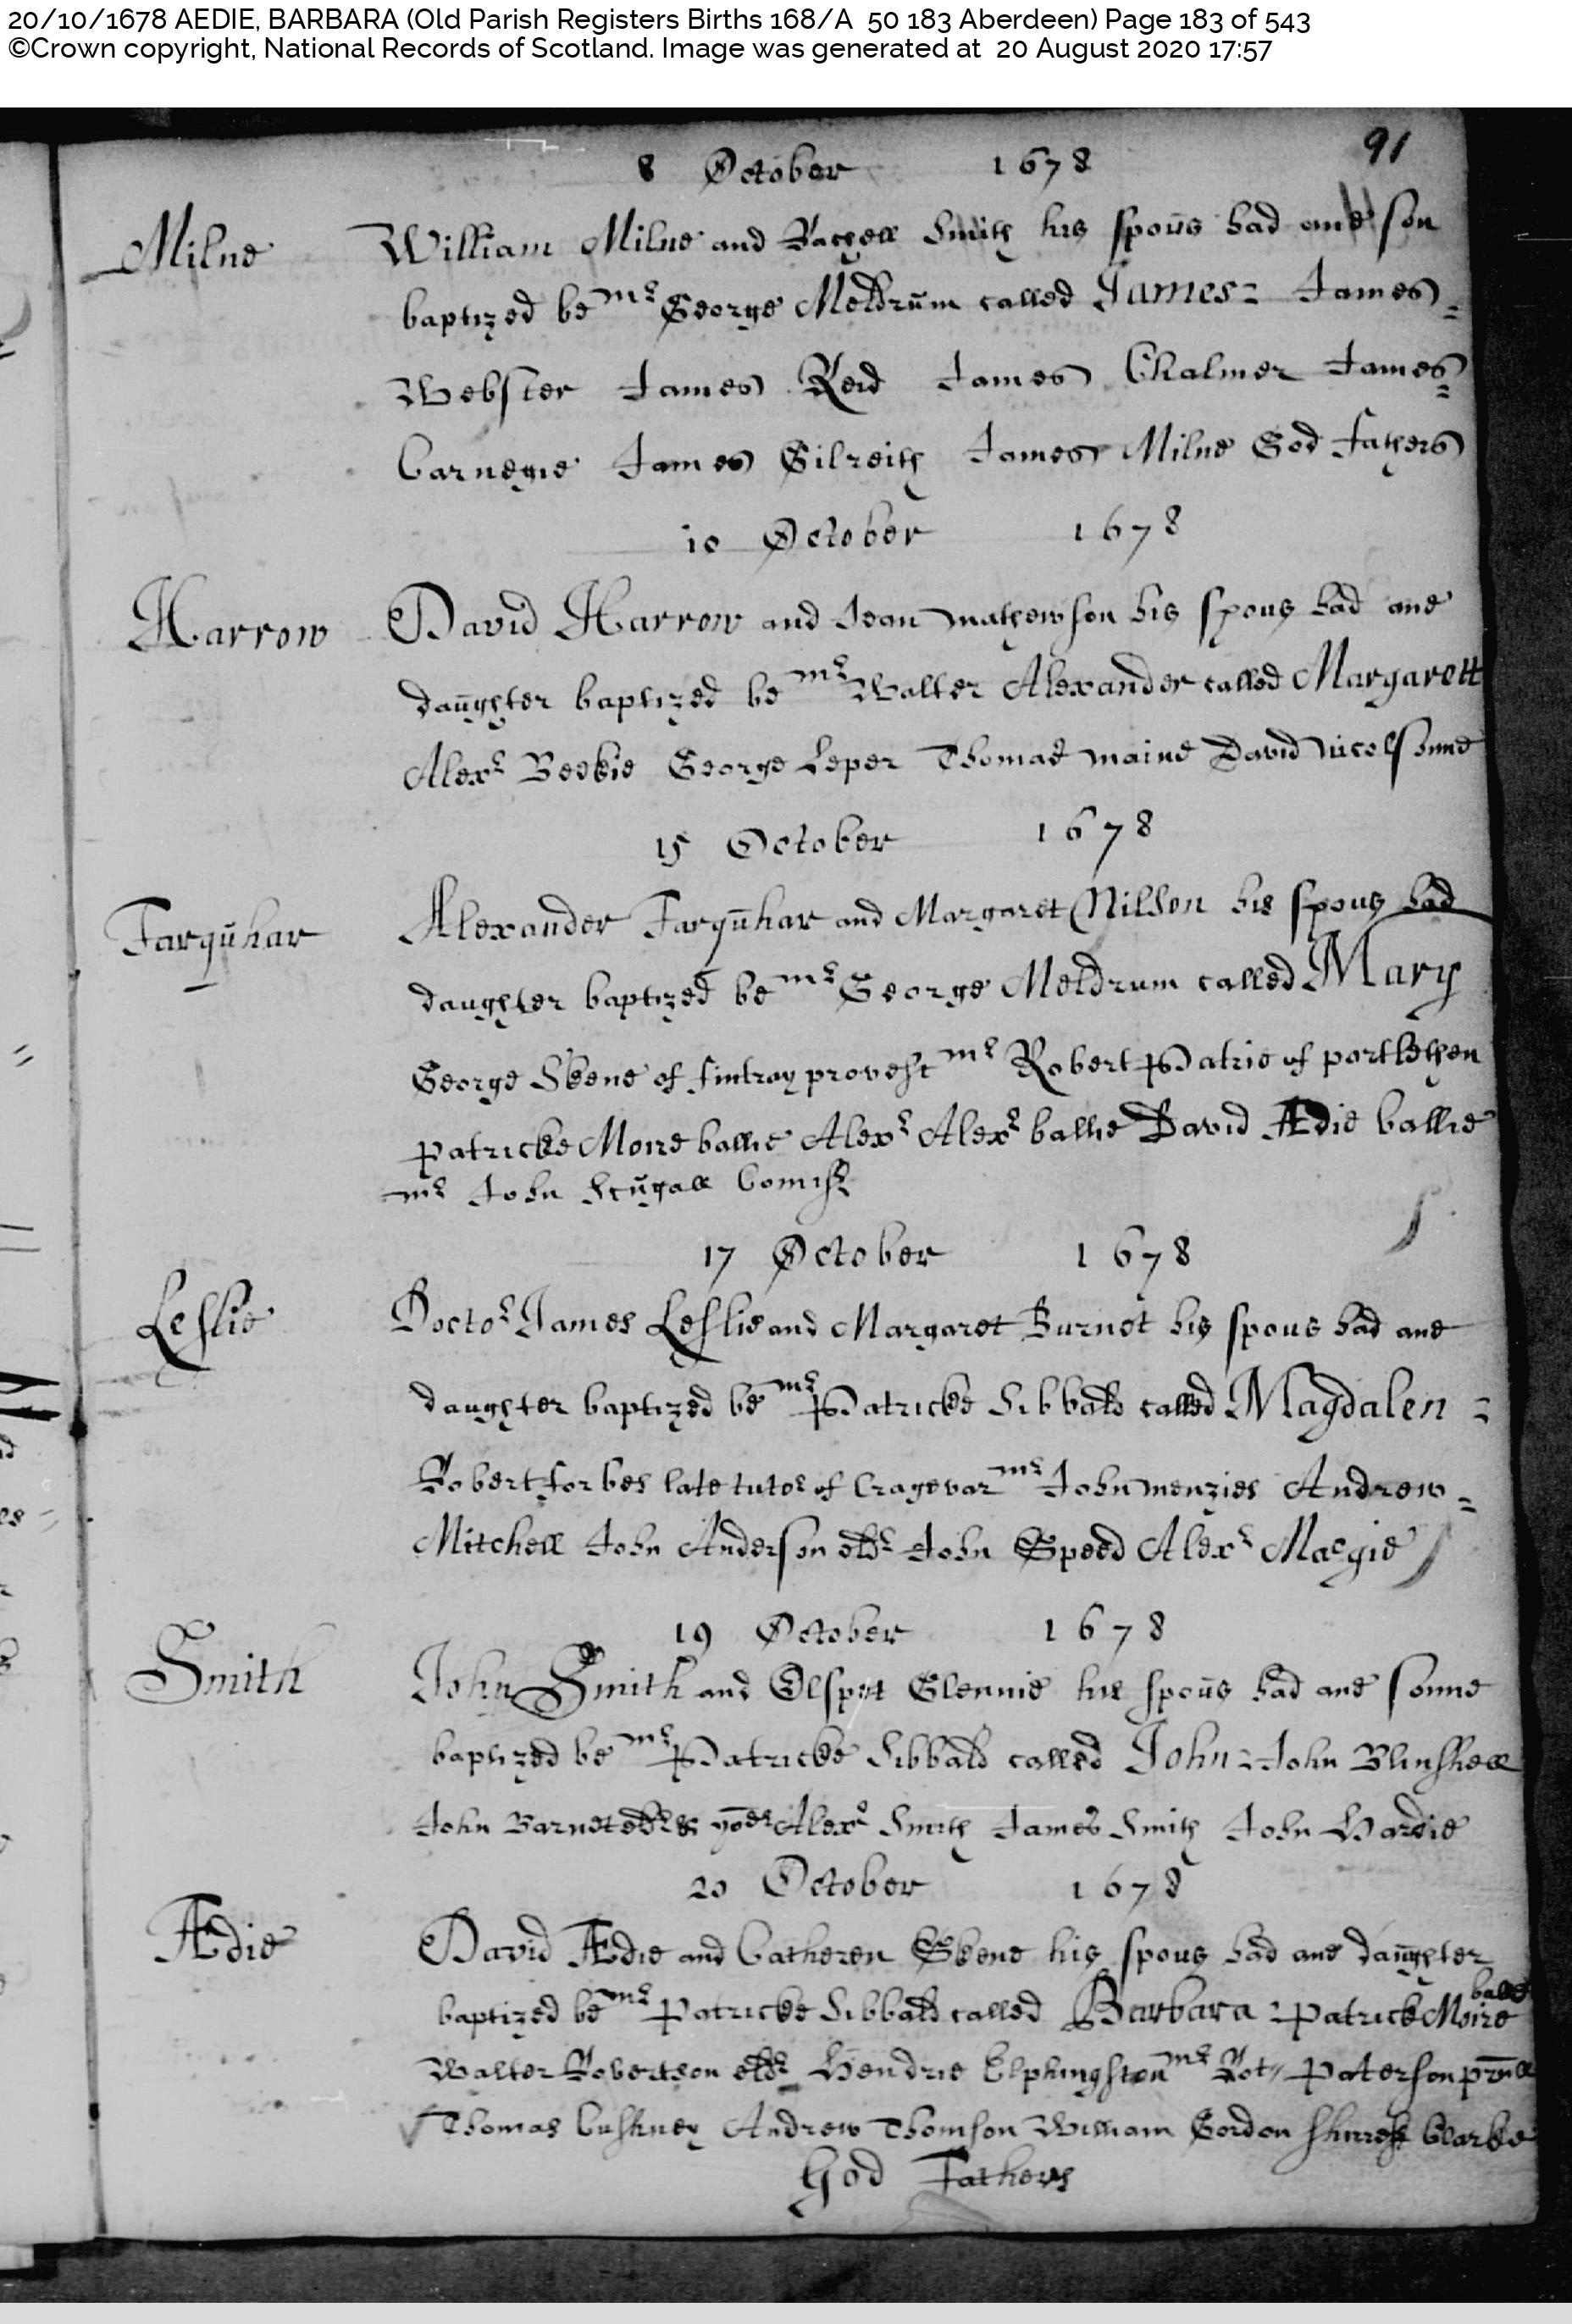 20/10/1678 AEDIE, BARBARA (Old Parish Registers Births 168/A 50 183 Aberdeen) Page 183 of 543
©Crown copyright, National Records of Scotland. Image was generated at 20 August 2020 17:57
91
8 October 1678
Milne
William Milne and Rachell Smith his spous had ane son
baptized be mr George Meldrum called James = James =
Webster James Reid James Chalmer James =
Carnegie James Gilreith James Milne God fathers
10 October 1678
Harrow
David Harrow and Jean mathewson his spous had ane
daughter baptized be mr Walter Alexander called Margarett
Alexr Beebie George Leper Thomas maine David nicolsonne
15 October 1678
Farquhar
Alexander Farquhar and Margaret Nilson his spous had
daughter baptized be mr George Meldrum called Mary
George Skene of fintray provest mr Robert Patrie of portlethen
patricke Moire ballie Alexr Alexr ballie David Ædie ballie
mr John Scugall Comissr
17 October 1678
Leslie
Doctor James Leslie and Margaret Burnet his spous had ane
daughter baptized be mr Patricke Sibbald called Magdalen =
Robert forbes late tutor of Cragevar mr John menzies Andrew =
Mitchell John Anderson eldr John Speed Alexr Macgie
19 October 1678
Smith
John Smith and Elspet Glennie his spous had ane sonne
baptized be mr Patricke Sibbald called John = John Blinshell
John Barnet eldr & yoer Alexr Smith James Smith John Hardie
20 October 1678
Ædie
David Ædie and Catheren Skene his spous had ane daughter
baptized be mr Patricke Sibbald called Barbara : patrick Moire ballie
Walter Robertson eldr Hendrie Elphingston mr Rot Paterson prinll
Thomas Cushney Andrew Thomson William Gordon Clarke
God Fathers